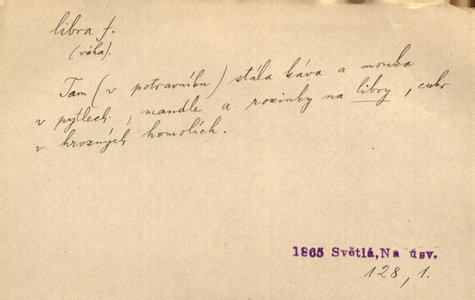 libra f.
(váha).
Tam (v potravníku) stála káva a mouka
v pytlech, mandle a rozinky na libry, cukr
v hrozných homolích.
1865 Světlá,Na úsv.
128, 1.